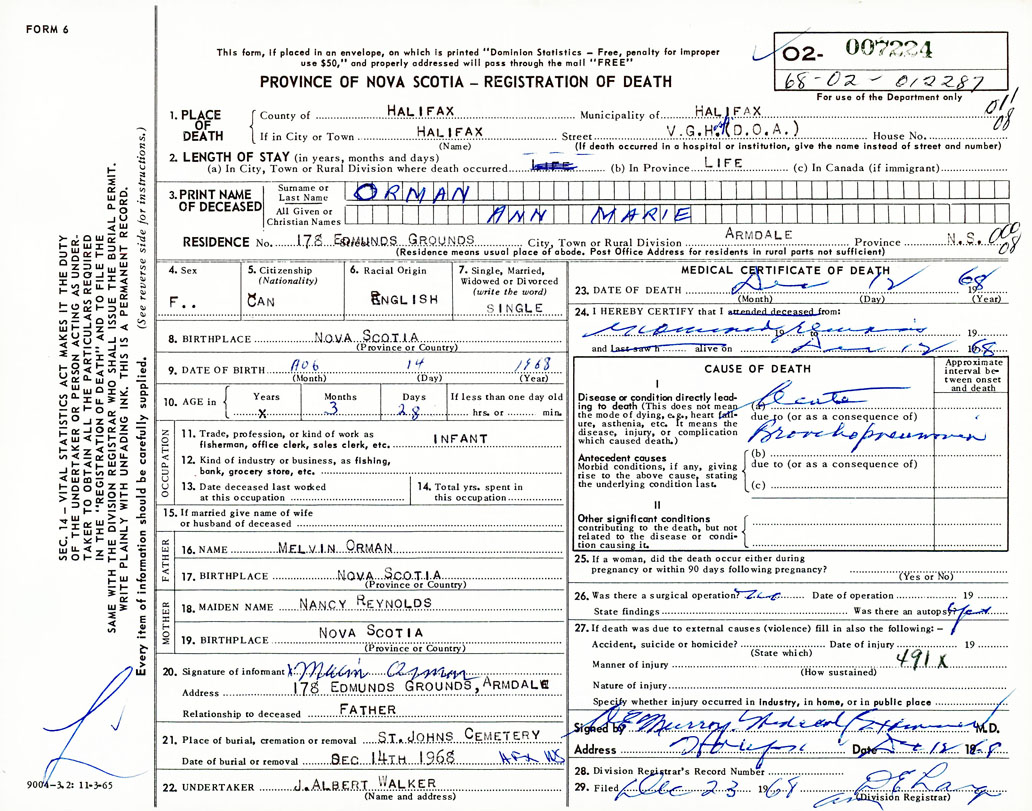 FORM 6
This form, if placed in an envelope, on which is printed "Dominion Statistics – Free, penalty for improper
use $50," and properly addressed will pass through the mail "FREE"
PROVINCE OF NOVA SCOTIA – REGISTRATION OF DEATH
02- 007224
68-02-012287
For use of the Department only
011
08
1. PLACE OF DEATH
County of HALIFAX Municipality of HALIFAX
If in City or Town HALIFAX Street V.G.H. (D.O.A.) House No.
(Name) (If death occurred in a hospital or institution, give the name instead of street and number)
2. LENGTH OF STAY (in years, months and days)
(a) In City, Town or Rural Division where death occurred LIFE (b) In Province LIFE (c) In Canada (if immigrant)
3. PRINT NAME OF DECEASED
Surname or Last Name ORMAN
All Given or Christian Names ANN MARIE
RESIDENCE No. 178 EDMUNDS GROUNDS City, Town or Rural Division ARMDALE Province N.S.
(Residence means usual place of abode. Post Office Address for residents in rural parts not sufficient)
08
4. Sex
F..
5. Citizenship
(Nationality)
CAN
6. Racial Origin
ENGLISH
7. Single, Married,
Widowed or Divorced
(write the word)
SINGLE
8. BIRTHPLACE NOVA SCOTIA
(Province or Country)
9. DATE OF BIRTH AUG 14 1968
(Month) (Day) (Year)
10. AGE in
Years Months Days If less than one day old
X 3 28 hrs. or min.
OCCUPATION
11. Trade, profession, or kind of work as
fisherman, office clerk, sales clerk, etc. INFANT
12. Kind of industry or business, as fishing,
bank, grocery store, etc.
13. Date deceased last worked
at this occupation
14. Total yrs. spent in
this occupation
15. If married give name of wife
or husband of deceased
FATHER
16. NAME MELVIN ORMAN
17. BIRTHPLACE NOVA SCOTIA
(Province or Country)
MOTHER
18. MAIDEN NAME NANCY REYNOLDS
19. BIRTHPLACE NOVA SCOTIA
(Province or Country)
20. Signature of informant X Melvin Orman
Address 178 EDMUNDS GROUNDS, ARMDALE
Relationship to deceased FATHER
21. Place of burial, cremation or removal ST. JOHNS CEMETERY
Date of burial or removal DEC 14TH 1968 HFX NS
22. UNDERTAKER J. ALBERT WALKER
(Name and address)
MEDICAL CERTIFICATE OF DEATH
23. DATE OF DEATH Dec 12 1968
(Month) (Day) (Year)
24. I HEREBY CERTIFY that I attended deceased from:
examined remains 19 to 19
and last saw h alive on Dec 12 1968
CAUSE OF DEATH
Approximate
interval be-
tween onset
and death
I
Disease or condition directly lead-
ing to death (This does not mean
the mode of dying, e.g., heart fail-
ure, asthenia, etc. It means the
disease, injury, or complication
which caused death.)
(a) Acute
due to (or as a consequence of)
Bronchopneumonia
Antecedent causes
Morbid conditions, if any, giving
rise to the above cause, stating
the underlying condition last.
(b)
due to (or as a consequence of)
(c)
II
Other significant conditions
contributing to the death, but not
related to the disease or condi-
tion causing it.
25. If a woman, did the death occur either during
pregnancy or within 90 days following pregnancy?
(Yes or No)
26. Was there a surgical operation? no Date of operation 19
State findings Was there an autopsy? yes
27. If death was due to external causes (violence) fill in also the following: –
Accident, suicide or homicide? Date of injury 19
(State which)
491 X
Manner of injury
(How sustained)
Nature of injury
Specify whether injury occurred in Industry, in home, or in public place
Signed by Murray Medical Examiner M.D.
Address Halifax Date Dec 12 1968
28. Division Registrar's Record Number
29. Filed Dec 23 1968
Division Registrar
SEC. 14 – VITAL STATISTICS ACT MAKES IT THE DUTY
OF THE UNDERTAKER OR PERSON ACTING AS UNDER-
TAKER TO OBTAIN ALL THE PARTICULARS REQUIRED
IN THE "REGISTRATION OF DEATH" AND TO FILE THE
SAME WITH THE DIVISION REGISTRAR WHO SHALL ISSUE THE BURIAL PERMIT.
WRITE PLAINLY WITH UNFADING INK. THIS IS A PERMANENT RECORD.
Every item of information should be carefully supplied. (See reverse side for instructions.)
9004-3.2: 11-3-65